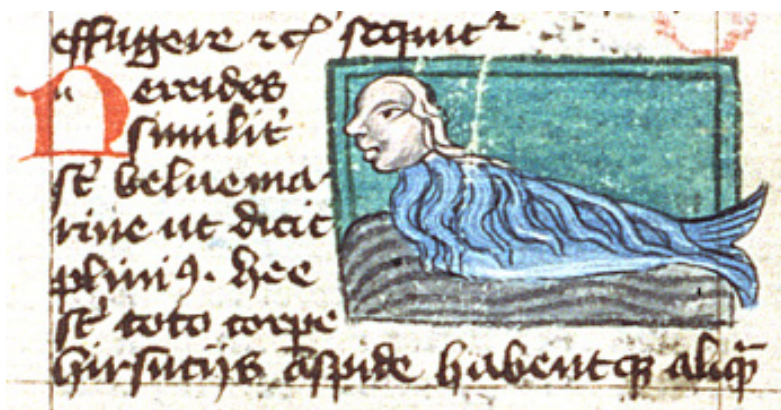 effugere ⁊cꝭ sequitᷣ
Nereides
similitͨ
st̃ beluema-
rine ut dicit
pliniꝰ. hee
st̃ toto corpe
hirsutijs aspide habentqꝫ aliqͣ̃